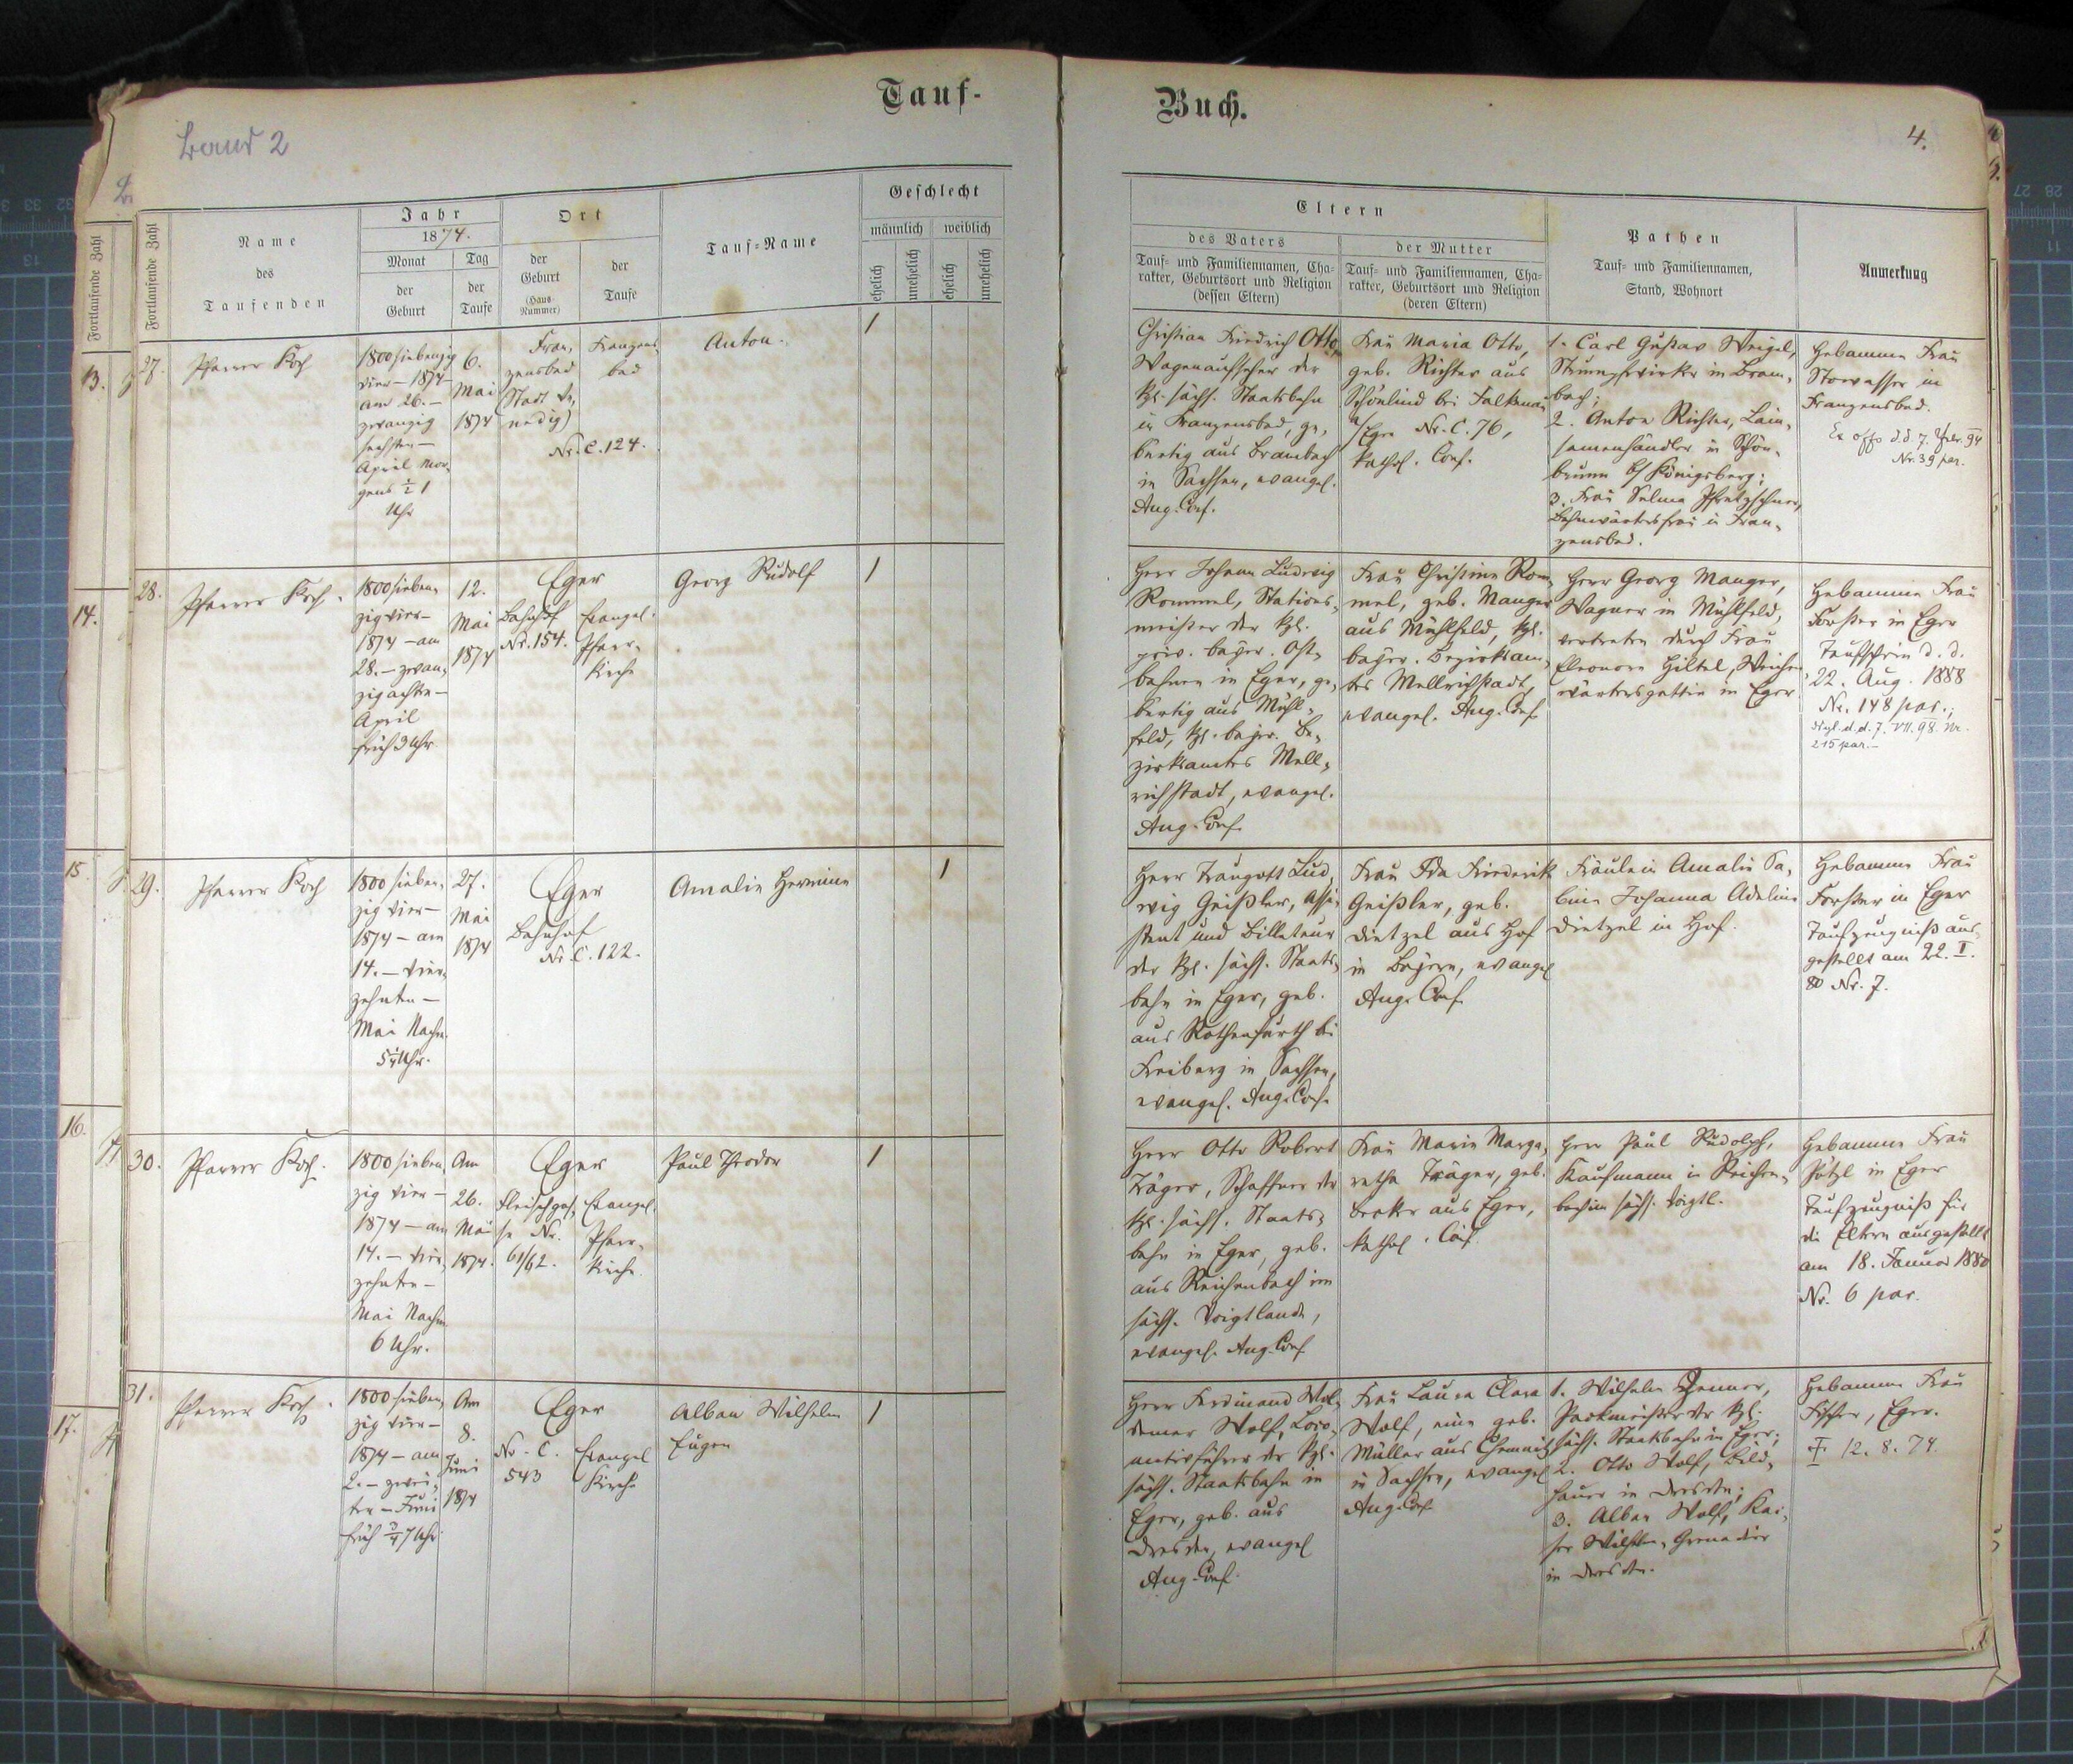 Tauf-
Buch.
Band 2
4.
Fortlaufende Zahl
13.
14.
15.
16.
17.
Fortlaufende Zahl
Name
des
Taufenden
Jahr
1874.
Monat
der
Geburt
Tag
der
Taufe
Ort
der
Geburt
(Haus-
Nummer)
der
Taufe
Tauf-Name
Geschlecht
männlich
weiblich
ehelich
unehelich
ehelich
unehelich
Eltern
des Vaters
Tauf- und Familiennamen, Cha-
rakter, Geburtsort und Religion
(dessen Eltern)
der Mutter
Tauf- und Familiennamen, Cha-
rakter, Geburtsort und Religion
(deren Eltern)
Pathen
Tauf- und Familiennamen,
Stand, Wohnort
Anmerkung
27.
Pfarrer Koch
1800 siebenzig
vier – 1874
am 26. –
zwanzig
sechsten –
April Mor-
gens ½ 1
Uhr
6.
Mai
1874
Fran-
zensbad
(Stadt Ve-
nedig)
Nr. C. 124.
Franzens-
bad
Anton.
1
Christian Friedrich Otto,
Wagenaufseher der
kgl. sächs. Staatsbahn
in Franzensbad, ge-
bürtig aus Brambach
in Sachsen, evangel.
Aug. Conf.
Frau Maria Otto,
geb. Richter aus
Schönlind bei Falkenau
a/Eger Nr. C. 76,
kathol. Conf.
1. Carl Gustav Weigel,
Strumpfwirker in Bram-
bach;
2. Anton Richter, Lein-
samenhändler in Schön-
brunn b/Königsberg;
3. Frau Selma Pfretzschner,
Bahnwärtersfrau in Fran-
zensbad.
Hebamme Frau
Stowasser in
Franzensbad.
Ex offo d.d. 7. Febr. 94
Nr. 39 par.
28.
Pfarrer Koch.
1800 sieben-
zig vier –
1874 – am
28. – zwan-
zig achten –
April
früh 3 Uhr
12.
Mai
1874
Eger
Bahnhof
Nr. 154.
Evangel.
Pfarr-
kirche
Georg Rudolf
1
Herr Johann Ludwig
Rommel, Stations-
meister der kgl.
priv. bayer. Ost-
bahnen in Eger, ge-
bürtig aus Mühl-
feld, kgl. bayer. Be-
zirksamtes Mell-
richstadt, evangel.
Aug. Conf.
Frau Christine Rom-
mel, geb. Manger
aus Mühlfeld, kgl.
bayer. Bezirksam-
tes Mellrichstadt,
evangel. Aug. Conf.
Herr Georg Manger,
Wagner in Mühlfeld,
vertreten durch Frau
Eleonore Hiltel, Weichen-
wärtersgattin in Eger
Hebamme Frau
Forster in Eger
Taufschein d. d.
22. Aug. 1888
Nr. 148 par.;
dtgl. d. d. 7. VII. 98. Nr.
215 par. –
29.
Pfarrer Koch
1800 sieben-
zig vier –
1874 – am
14. – vier-
zehnten –
Mai Nachm.
5¼ Uhr.
27.
Mai
1874
Eger
Bahnhof
Nr. C. 122.
Amalie Hermine
1
Herr Traugott Lud-
wig Geißler, Assi-
stent und Billeteur
der kgl. sächs. Staats-
bahn in Eger, geb.
aus Rothenfurth bei
Freiberg in Sachsen,
evangel. Aug. Conf.
Frau Ida Friederik
Geißler, geb.
Dietzel aus Hof
in Bayern, evangel
Aug. Conf.
Fräulein Amalie Sa-
bine Johanna Adeline
Dietzel in Hof.
Hebamme Frau
Forster in Eger
Taufzeugniß aus-
gestellt am 22. I.
80 Nr. 7.
30.
Pfarrer Koch.
1800 sieben-
zig vier –
1874 – am
14. – vier-
zehnten –
Mai Nachm.
6 Uhr.
Am
26.
Mai
1874.
Eger
Fleischgas-
se Nr.
61/62.
Evangel.
Pfarr-
kirche.
Paul Theodor
1
Herr Otto Robert
Träger, Schaffner der
kgl. sächs. Staats-
bahn in Eger, geb.
aus Reichenbach im
sächs. Voigtlande,
evangel. Aug. Conf
Frau Marie Marga-
retha Träger, geb.
Becker aus Eger,
kathol. Conf.
Herr Paul Rudolph,
Kaufmann in Reichen-
bach im sächs. Voigtl.
Hebamme Frau
Pötzl in Eger
Taufzeugniß für
die Eltern ausgestellt
am 18. Januar 1880
Nr. 6 par.
31.
Pfarrer Koch.
1800 sieben-
zig vier –
1874 – am
2. – zwei-
ten – Juni
früh ¾7 Uhr
Am
8.
Juni
1874
Eger
Nr. C.
543
Evangel
Kirche
Alban Wilhelm
Eugen
1
Herr Ferdinand Wol-
demar Wolf, Loco-
motivführer der kgl.
sächs. Staatsbahn in
Eger, geb. aus
Dresden, evangel
Aug. Conf.
Frau Laura Clara
Wolf, eine geb.
Müller aus Chemnitz
in Sachsen, evangel
Aug. Conf
1. Wilhelm Zenner,
Packmeister der kgl.
sächs. Staatsbahn in Eger;
2. Otto Wolf, Bild-
hauer in Dresden;
3. Alban Wolf, Kai-
ser Wilhelm-Grenadier
in Dresden.
Hebamme Frau
Fischer, Eger.
12. 8. 74.